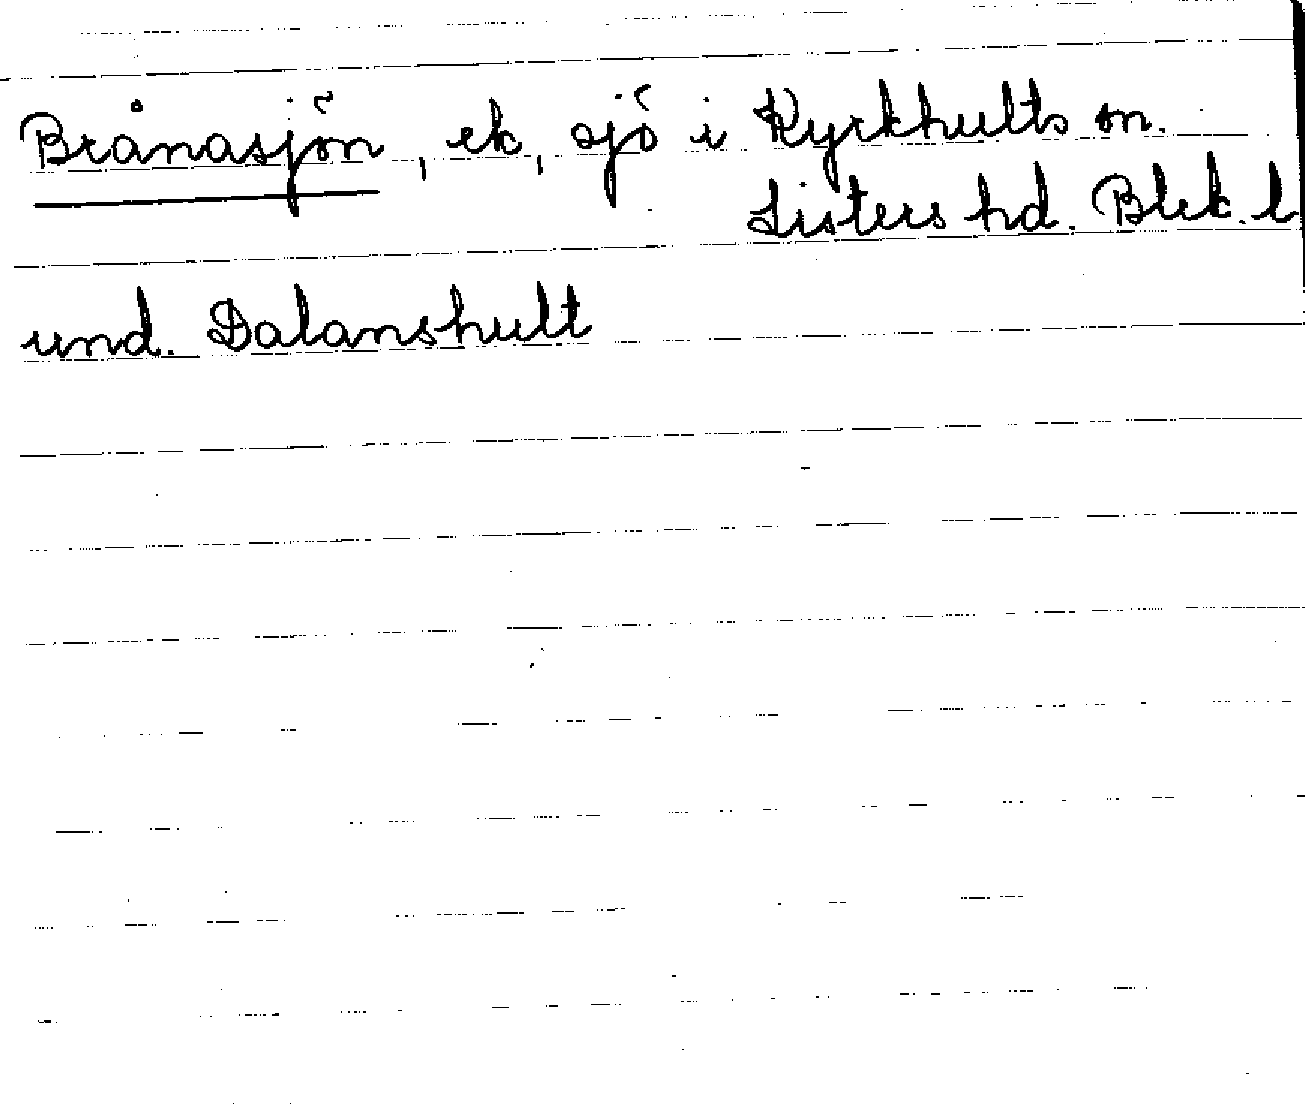 Brånasjön, ek, sjö i Kyrkhults sn.
Listers hd. Blek. l
und. Dalanshult